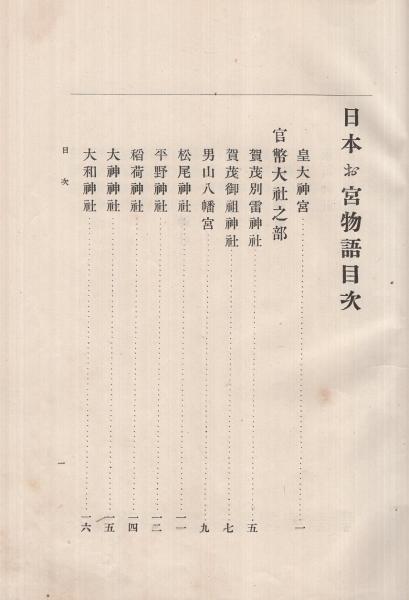 日本お宮物語目次
皇大神宮……………………一
官幣大社之部
賀茂別雷神社……………………五
賀茂御祖神社……………………七
男山八幡宮……………………九
松尾神社……………………一一
平野神社……………………一二
稻荷神社……………………一四
大神神社……………………一五
大和神社……………………一六
目次
一